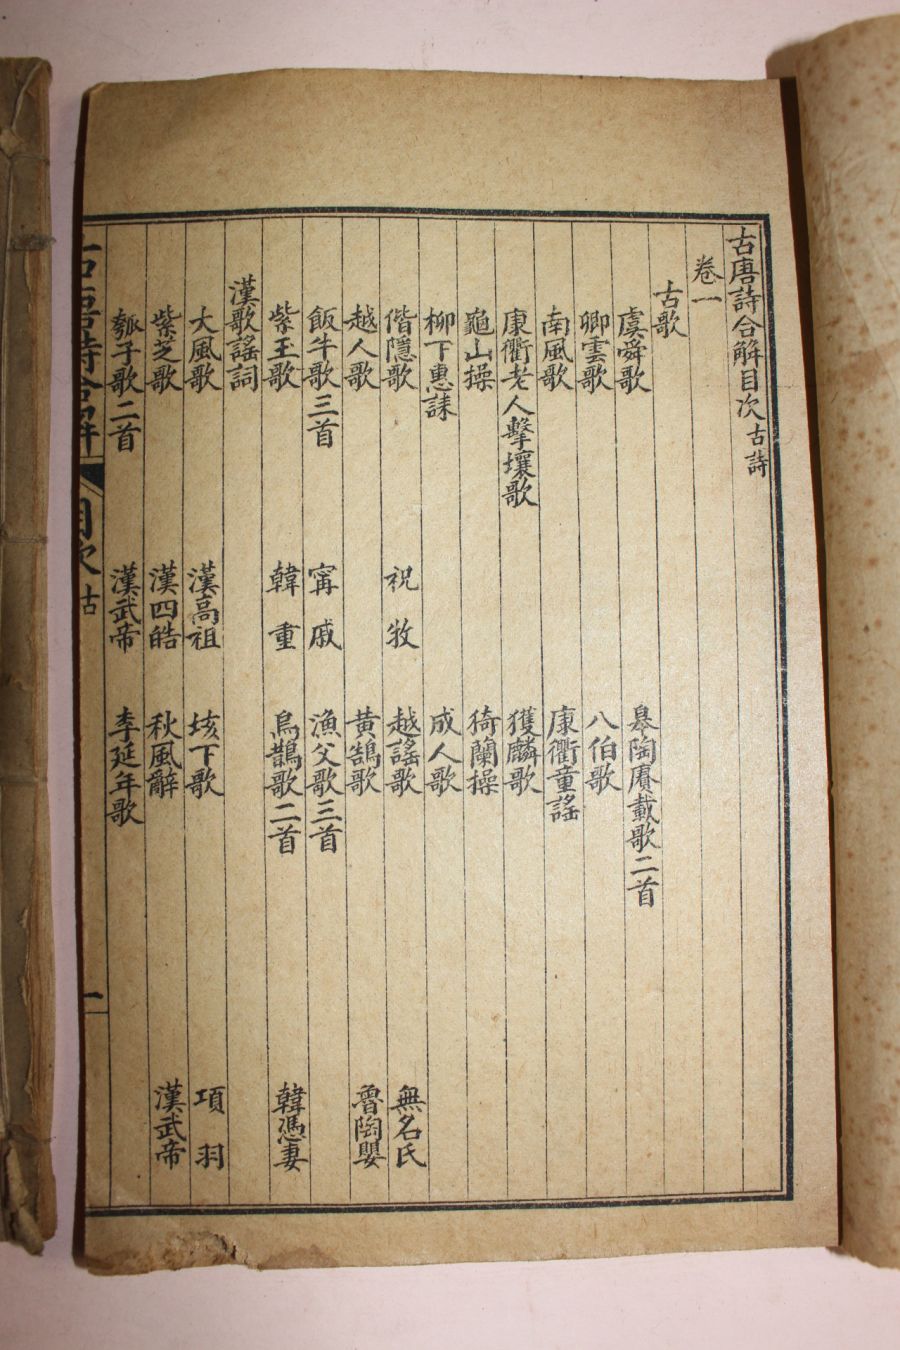 古唐詩合解目次 古詩
卷一
古歌
虞舜歌 皋陶賡載歌二首
卿雲歌 八伯歌
南風歌 康衢童謠
康衢老人擊壤歌 獲麟歌
龜山操 猗蘭操
柳下惠誄 成人歌
偕隱歌 祝牧 越謠歌 無名氏
越人歌 黃鵠歌 魯陶嬰
飯牛歌三首 甯戚 漁父歌三首
紫玉歌 韓重 烏鵲歌二首 韓憑妻
漢歌謠詞
大風歌 漢高祖 垓下歌 項羽
紫芝歌 漢四皓 秋風辭 漢武帝
瓠子歌二首 漢武帝 李延年歌
古唐詩合解 目次 古 一